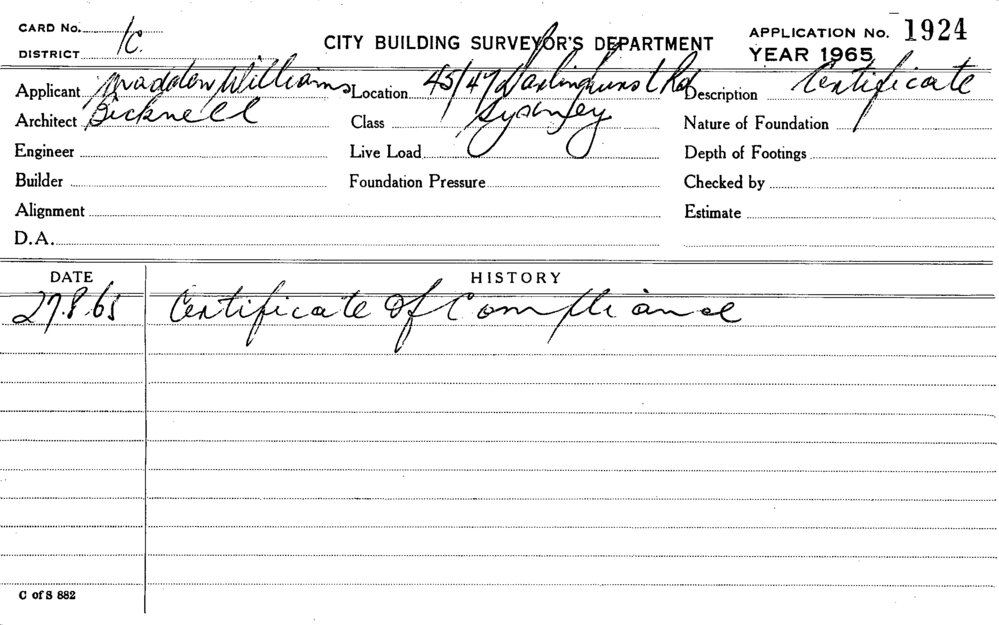 CARD No. 1C.
DISTRICT
CITY BUILDING SURVEYOR'S DEPARTMENT
APPLICATION No. 1924
YEAR 1965
Applicant Williams Location 45/47 Darlinghurst Rd Description Certificate
Architect Bicknell Class Sydney Nature of Foundation
Engineer Live Load Depth of Footings
Builder Foundation Pressure Checked by
Alignment Estimate
D.A.
DATE HISTORY
27.8.65 Certificate Of Compliance
C of S 882